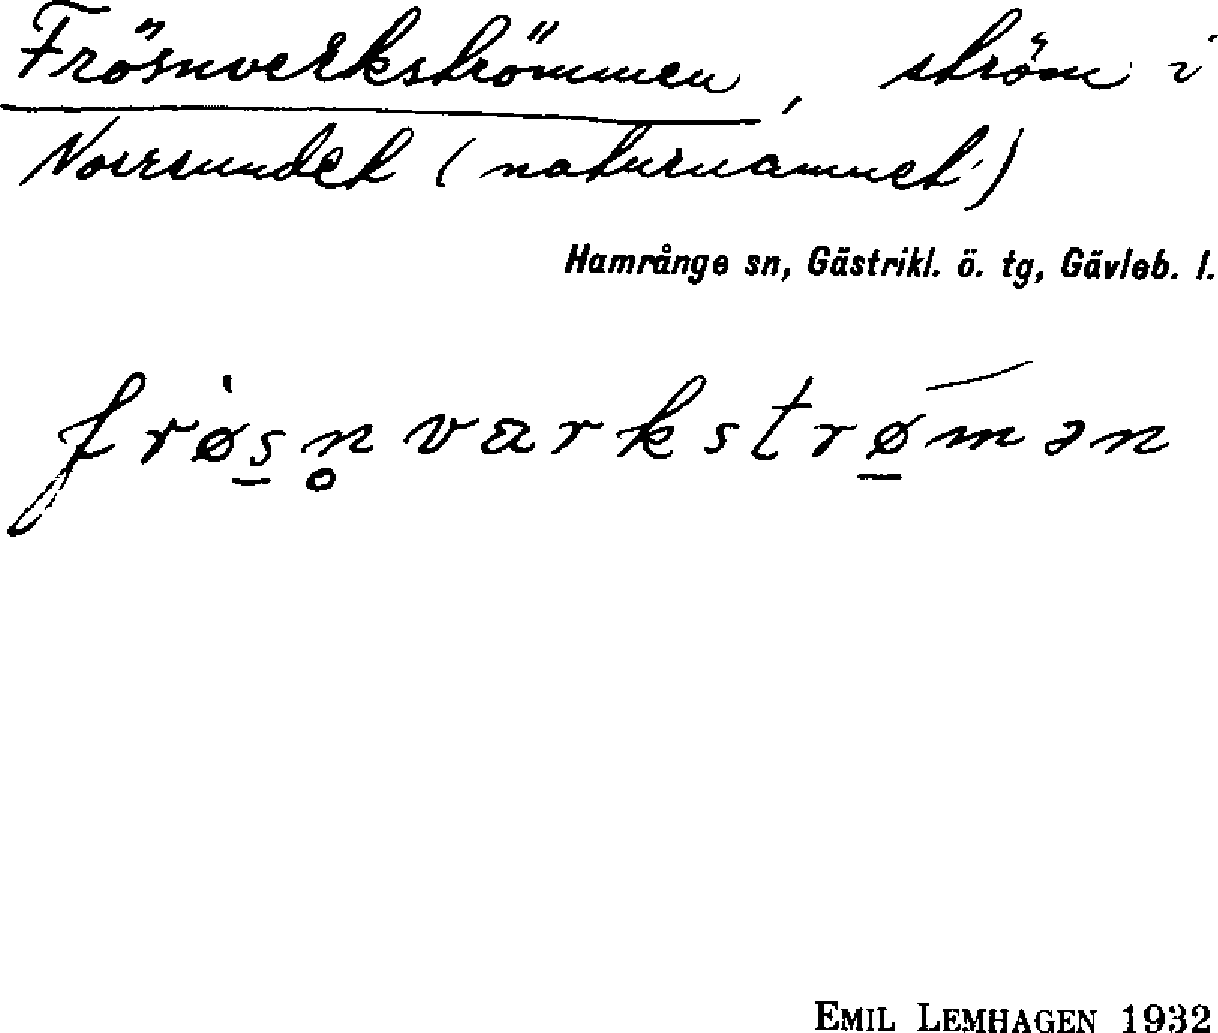 Frösnverkströmmen, ström i
Norrsundet (naturnamnet)
Hamrånge sn, Gästrikl. ö. tg, Gävleb. l.
frø̀s̠n̥varkstrø̠̄mən
EMIL LEMHAGEN 1932